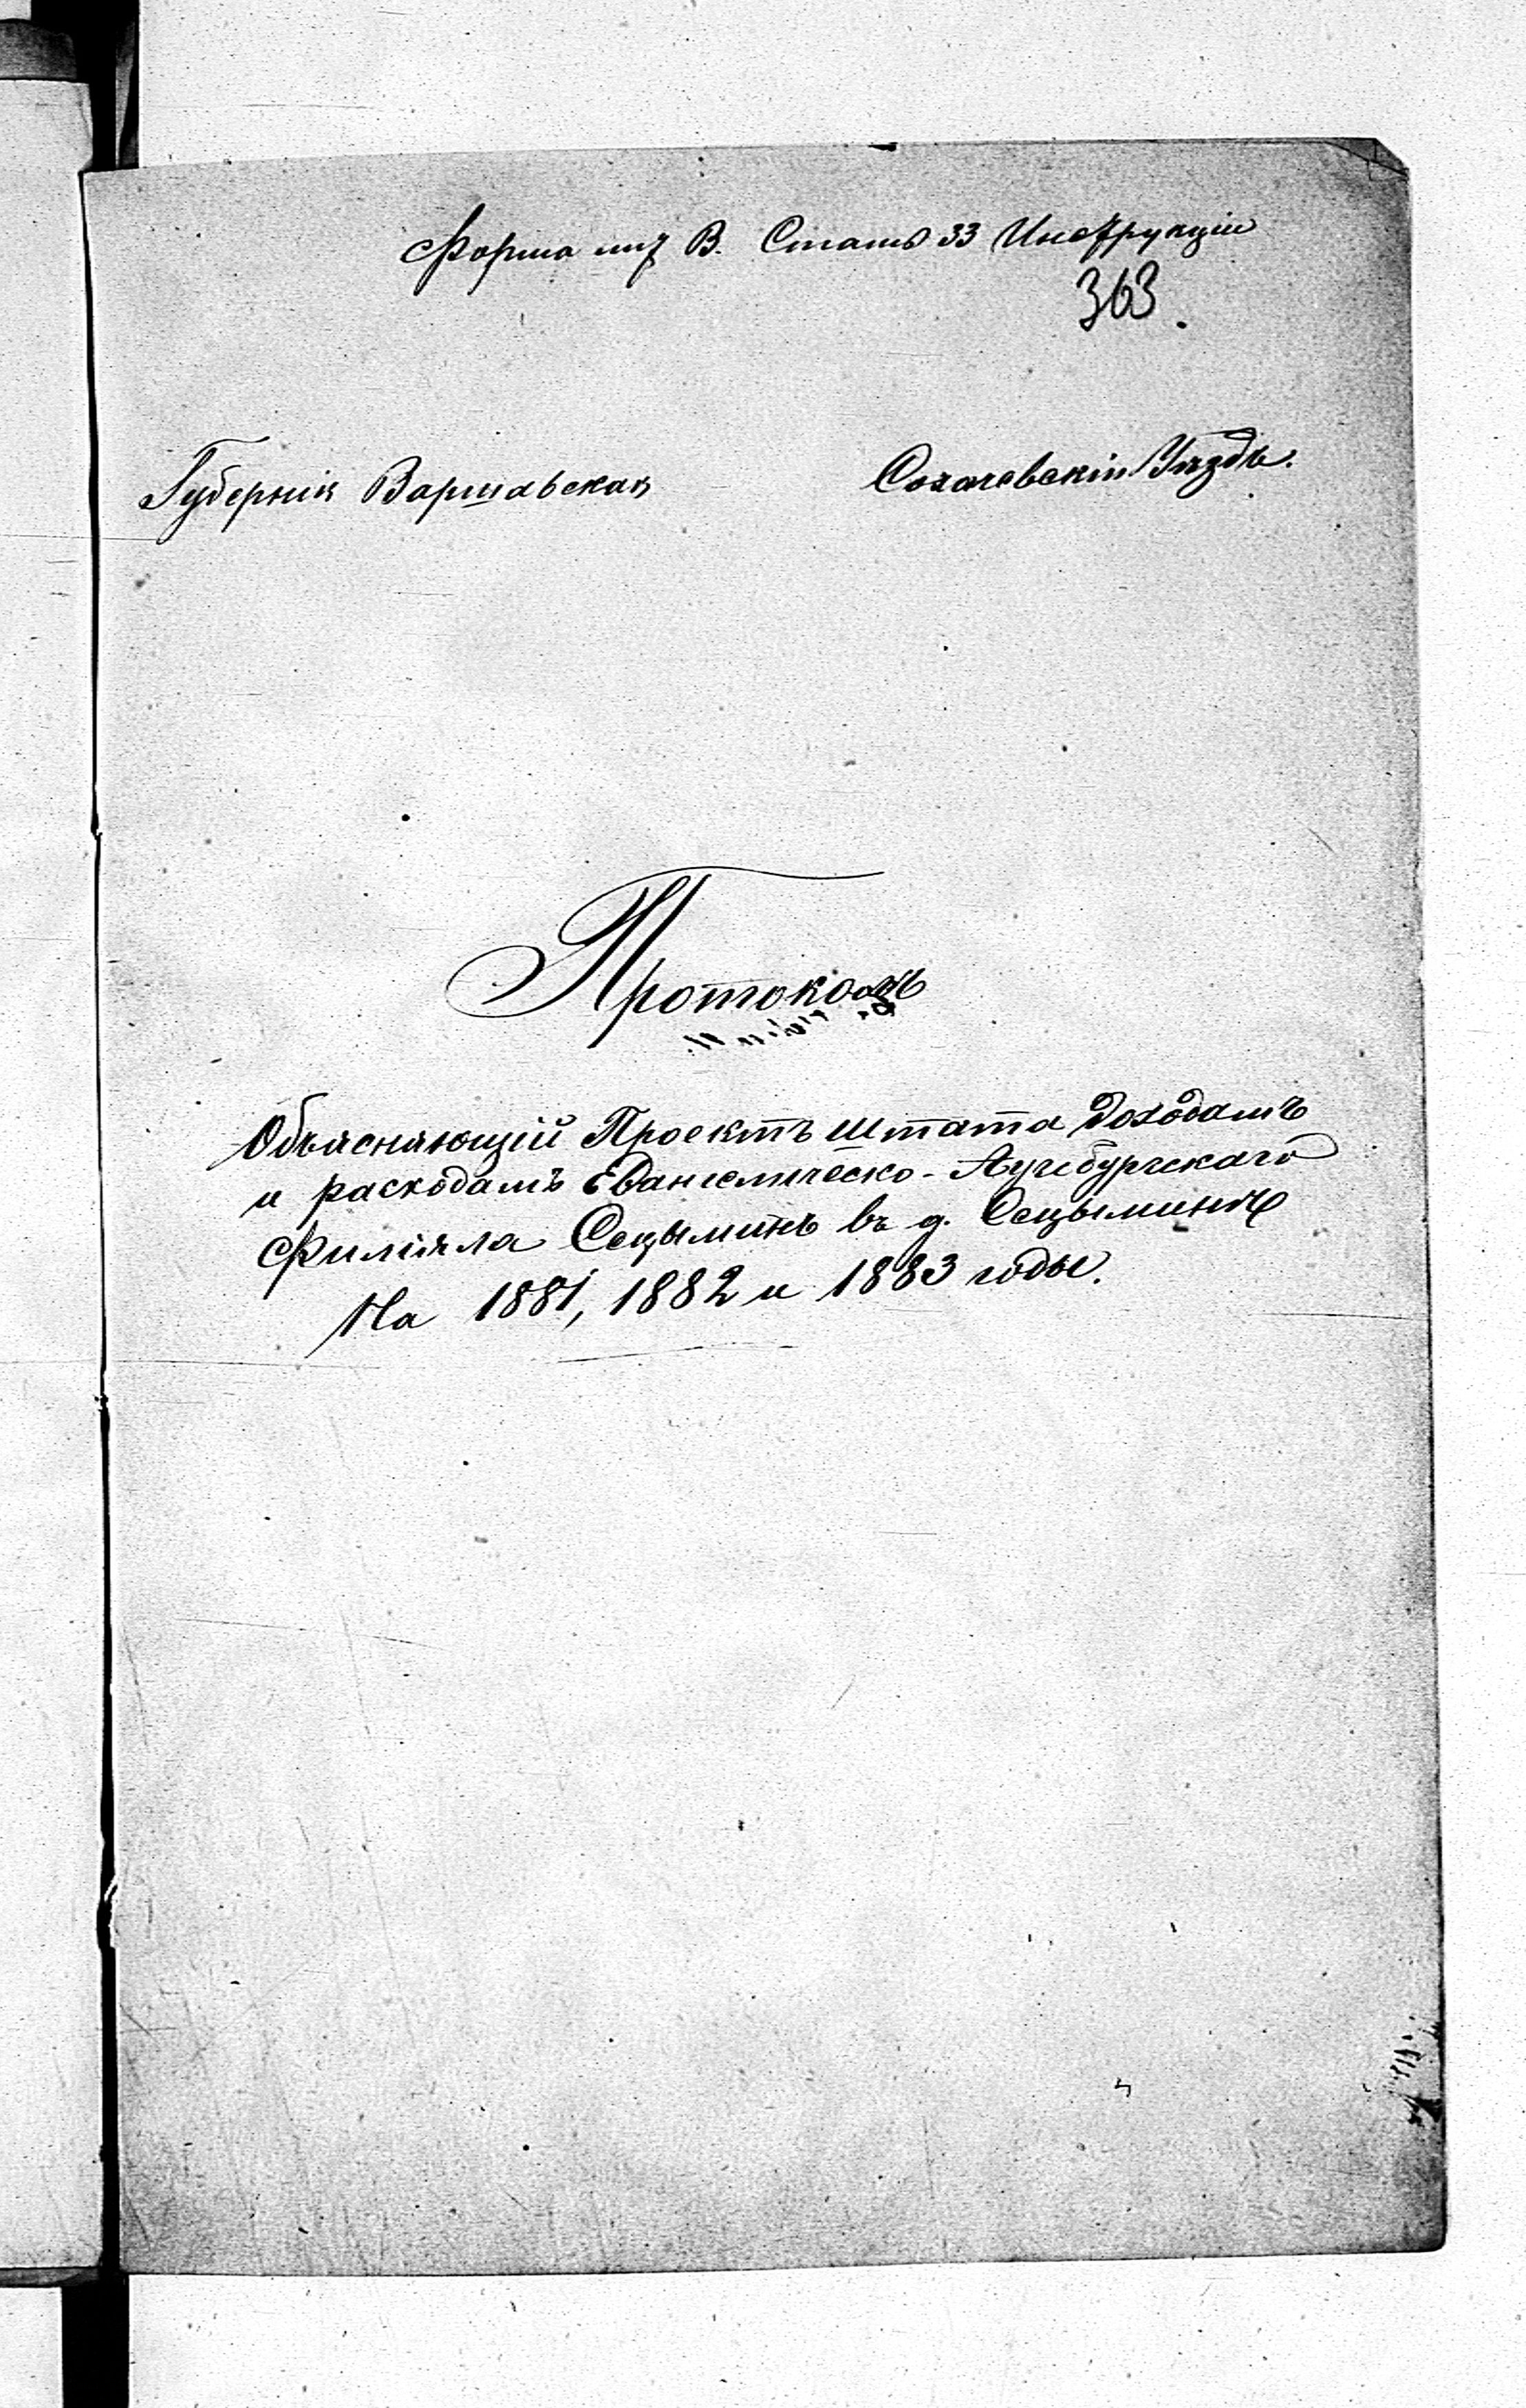 Форма лит В. Стать 33 Инструкціи
363.
Губернія Варшавская
Сохачевскій Уѣздъ.
Протоколъ
Объясняющій Проектъ штата Доходамъ
и расходамъ Евангелическо-Аугсбургскаго
Филіяла Сецыминъ въ д. Сецыминѣ
На 1881, 1882 и 1883 годы.